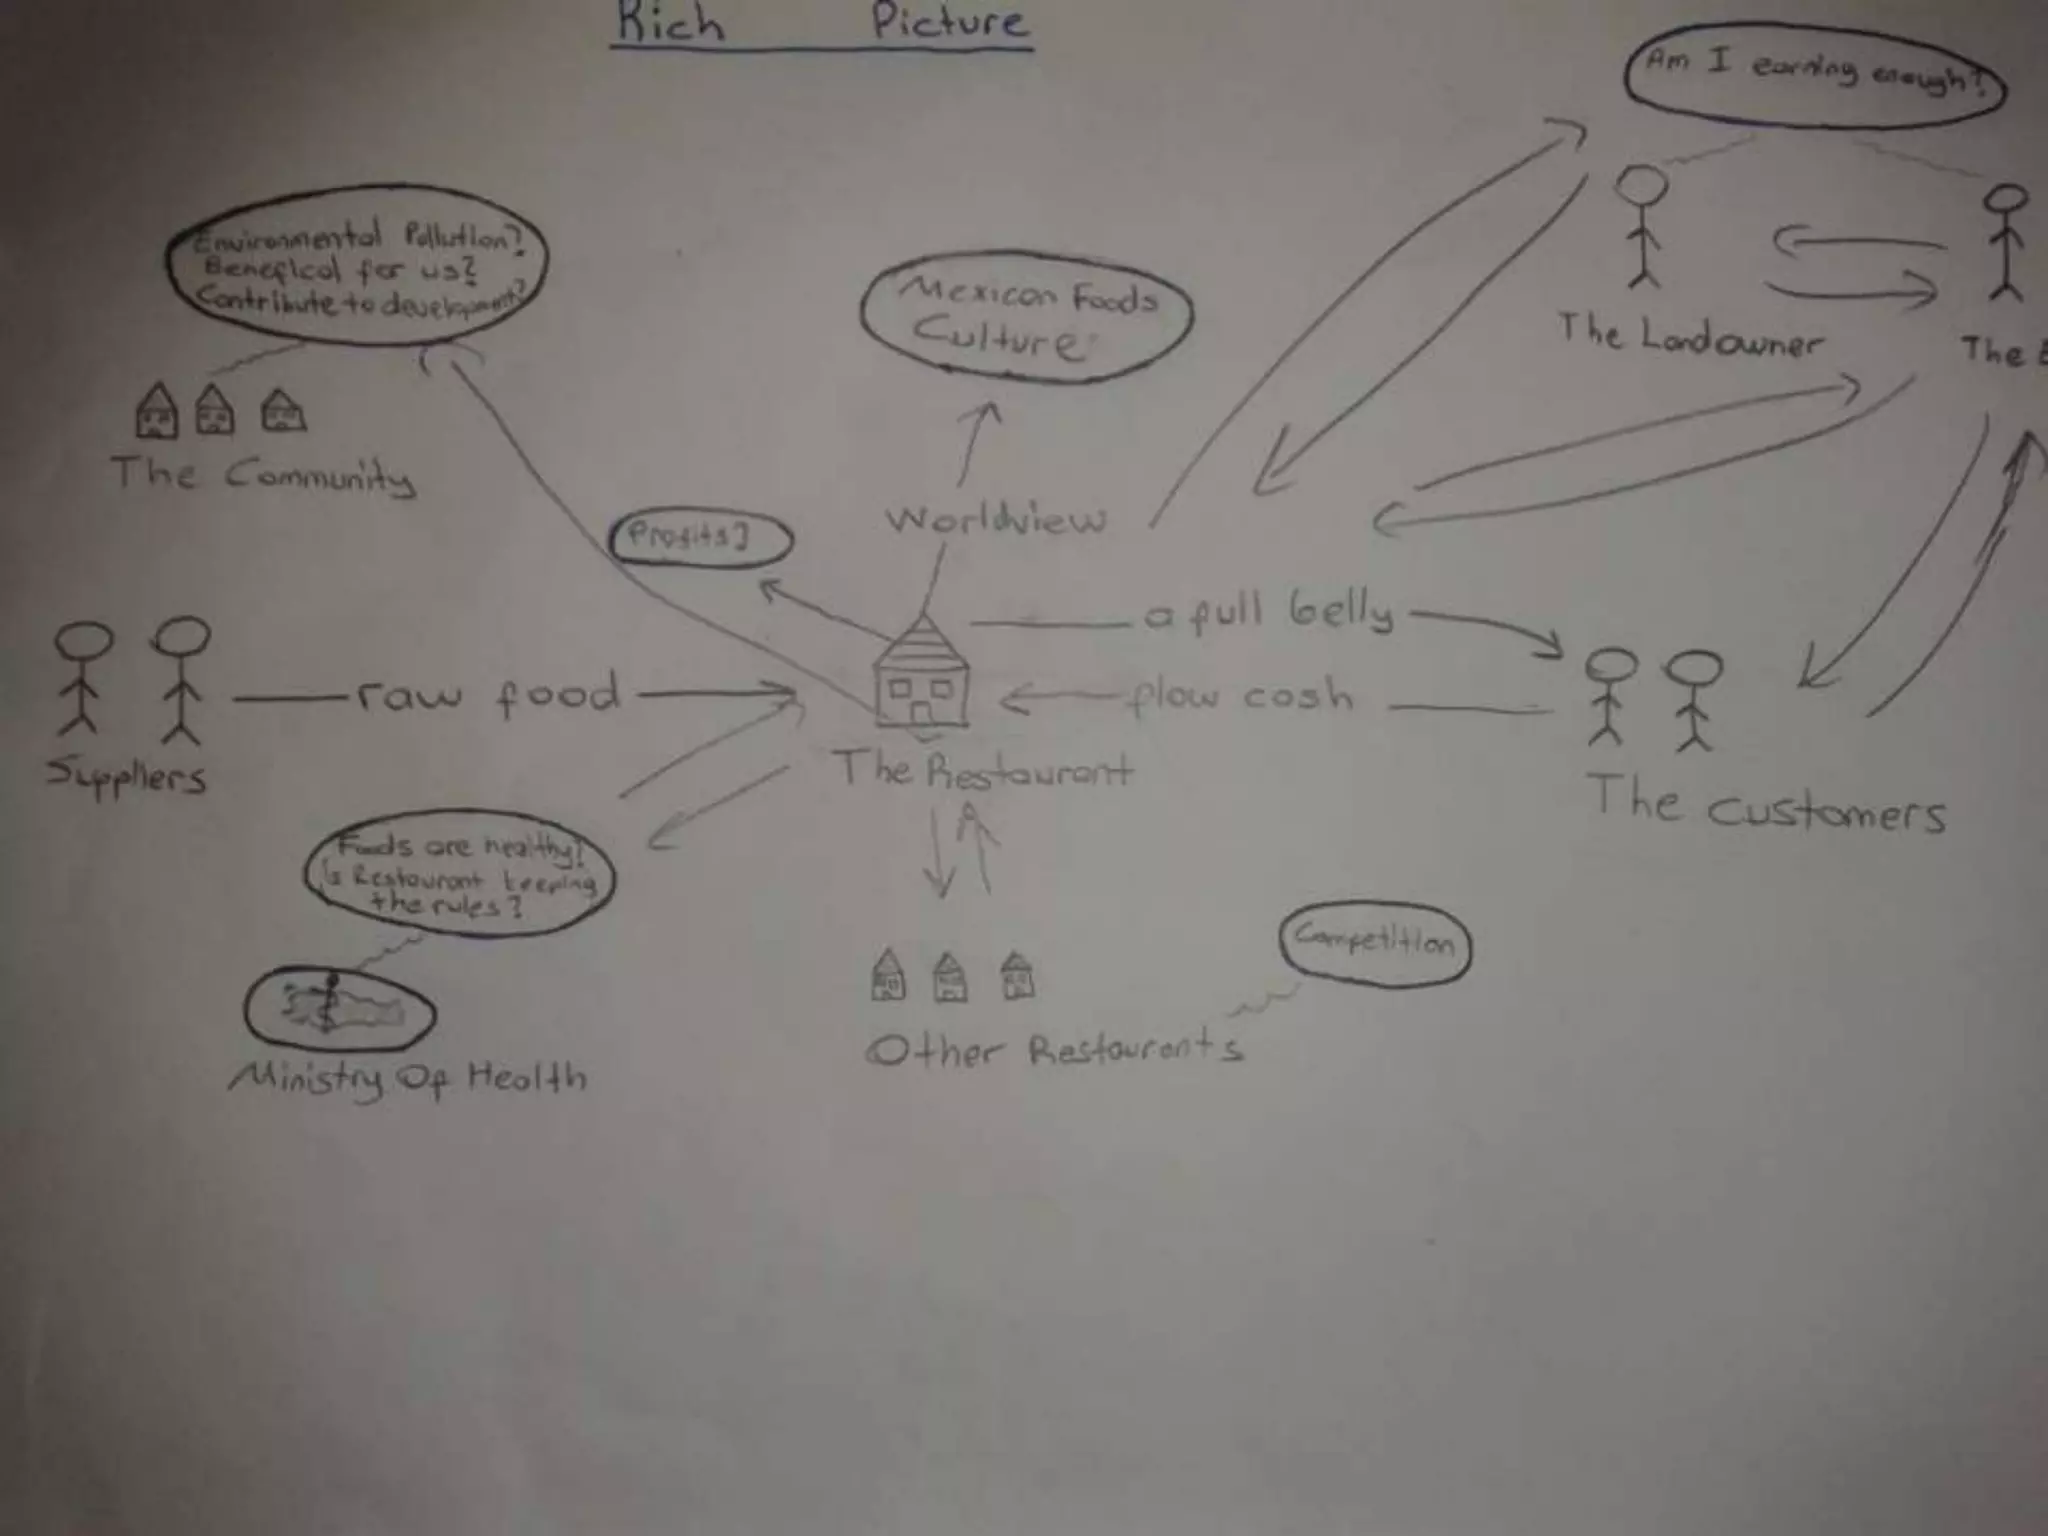 Rich Picture
Am I earning enough?
Environmental Pollution?
Benefical for us?
Contribute to development?
Mexican Foods
Culture
The Landowner
The
The Community
Worldview
Profits?
a full belly
raw food
flow cash
Suppliers
The Restaurant
The Customers
Foods are healthy?
Is Restaurant keeping
the rules?
Competition
Other Restaurants
Ministry Of Health